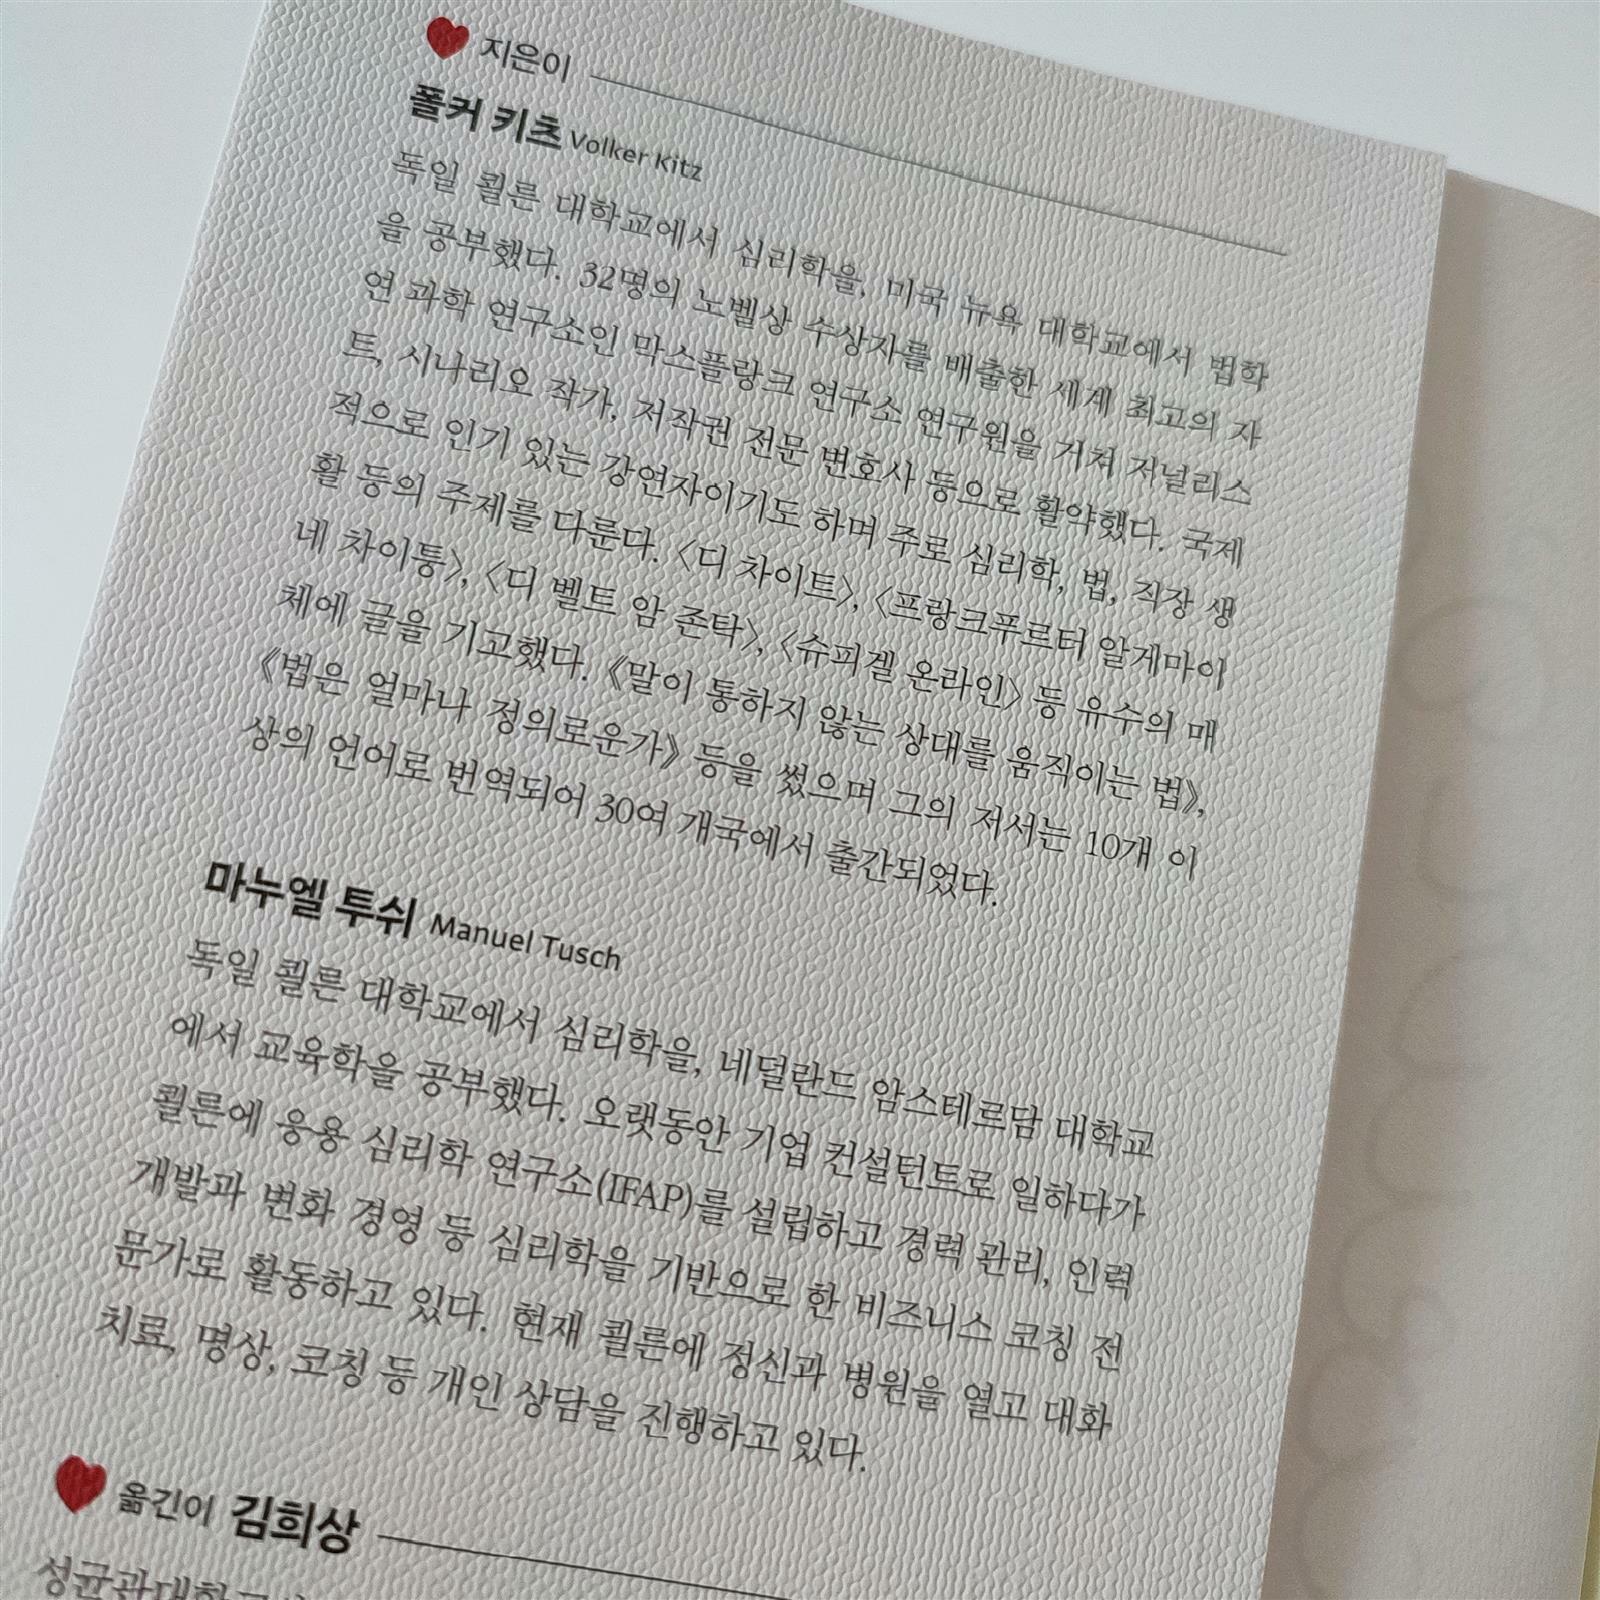 지은이
폴커 키츠 Volker Kitz
독일 쾰른 대학교에서 심리학을, 미국 뉴욕 대학교에서 법학
을 공부했다. 32명의 노벨상 수상자를 배출한 세계 최고의 자
연 과학 연구소인 막스플랑크 연구소 연구원을 거쳐 저널리스
트, 시나리오 작가, 저작권 전문 변호사 등으로 활약했다. 국제
적으로 인기 있는 강연자이기도 하며 주로 심리학, 법, 직장 생
활 등의 주제를 다룬다. 〈디 차이트〉, 〈프랑크푸르터 알게마이
네 차이퉁〉, 〈디 벨트 암 존탁〉, 〈슈피겔 온라인〉 등 유수의 매
체에 글을 기고했다. 《말이 통하지 않는 상대를 움직이는 법》,
《법은 얼마나 정의로운가》 등을 썼으며 그의 저서는 10개 이
상의 언어로 번역되어 30여 개국에서 출간되었다.
마누엘 투쉬 Manuel Tusch
독일 쾰른 대학교에서 심리학을, 네덜란드 암스테르담 대학교
에서 교육학을 공부했다. 오랫동안 기업 컨설턴트로 일하다가
쾰른에 응용 심리학 연구소(IFAP)를 설립하고 경력 관리, 인력
개발과 변화 경영 등 심리학을 기반으로 한 비즈니스 코칭 전
문가로 활동하고 있다. 현재 쾰른에 정신과 병원을 열고 대화
치료, 명상, 코칭 등 개인 상담을 진행하고 있다.
옮긴이 김희상